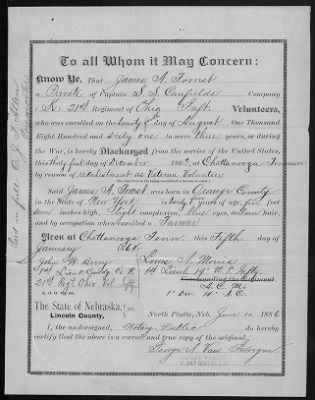 To all Whom it May Concern:
Know Ye, That James A. Forrest
a Private of Captain S. S. Canfields Company
K, 21st Regiment of Ohio Inft. Volunteers,
who was enlisted on the day of August One Thousand
Eight Hundred and Sixty one to serve three years, or during
the War, is hereby Discharged from the service of the United States,
this thirty first day of December 1863, at Chattanooga Tennessee
by reason of reenlistment as Veteran Volunteer
Said James A. Forrest was born in Orange County
in the State of New York is years of age, five feet
inches high, Light complexion, blue eyes, hair,
and by occupation when enrolled a Farmer
Given at Chattanooga Tenn. this Fifth day of
January 1864
John W. Berry
1st Lieut Comdg Co. K.
21st Regt Ohio Vol. Infty.
Louis A. Morris
1st Lieut 19" U.S. Infty.
Commanding the Regiment
A. C. M.
1" Div 14" A. C.
The State of Nebraska,
Lincoln County.
North Platte, Neb. June 10 1886
I, the undersigned, Notary Public do hereby
certify that the above is a correct and true copy of the original.
Paid in full